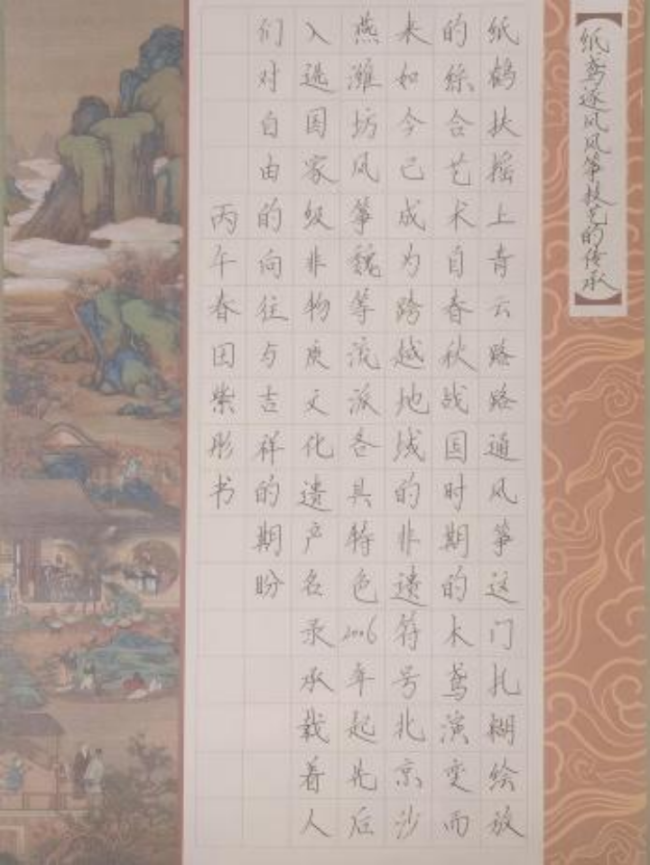 纸鸢逐风风筝技艺的传承
纸鹤扶摇上青云路路通风筝这门扎糊绘放
的综合艺术自春秋战国时期的木鸢演变而
来如今已成为跨越地域的非遗符号北京沙
燕潍坊风筝魏等流派各具特色2006年起先后
入选国家级非物质文化遗产名录承载着人
们对自由的向往与吉祥的期盼
丙午春因紫彤书